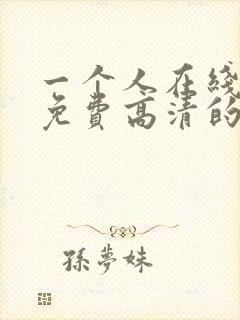 一个人在线
免费高清的
孫夢妹